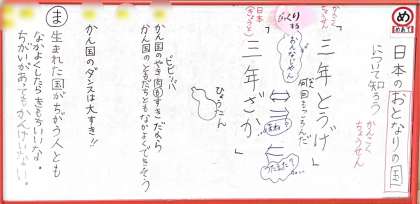 め
めあて
日本のおとなりの国
について知ろう
かんこく
ちょうせん
かんこく
「三年とうげ」
何回もころんだ
びっくり
する
おんなじゃん
日本
「三年ざか」
ひょうたん
ビビンバ
かん国のやき肉もすきだから
かん国のともだちともなかよくできそう
かん国のダンスは大すき!!
ま
生まれた国がちがう人とも
なかよくしたらきもちいいな。
ちがいがあってもかんけいない。